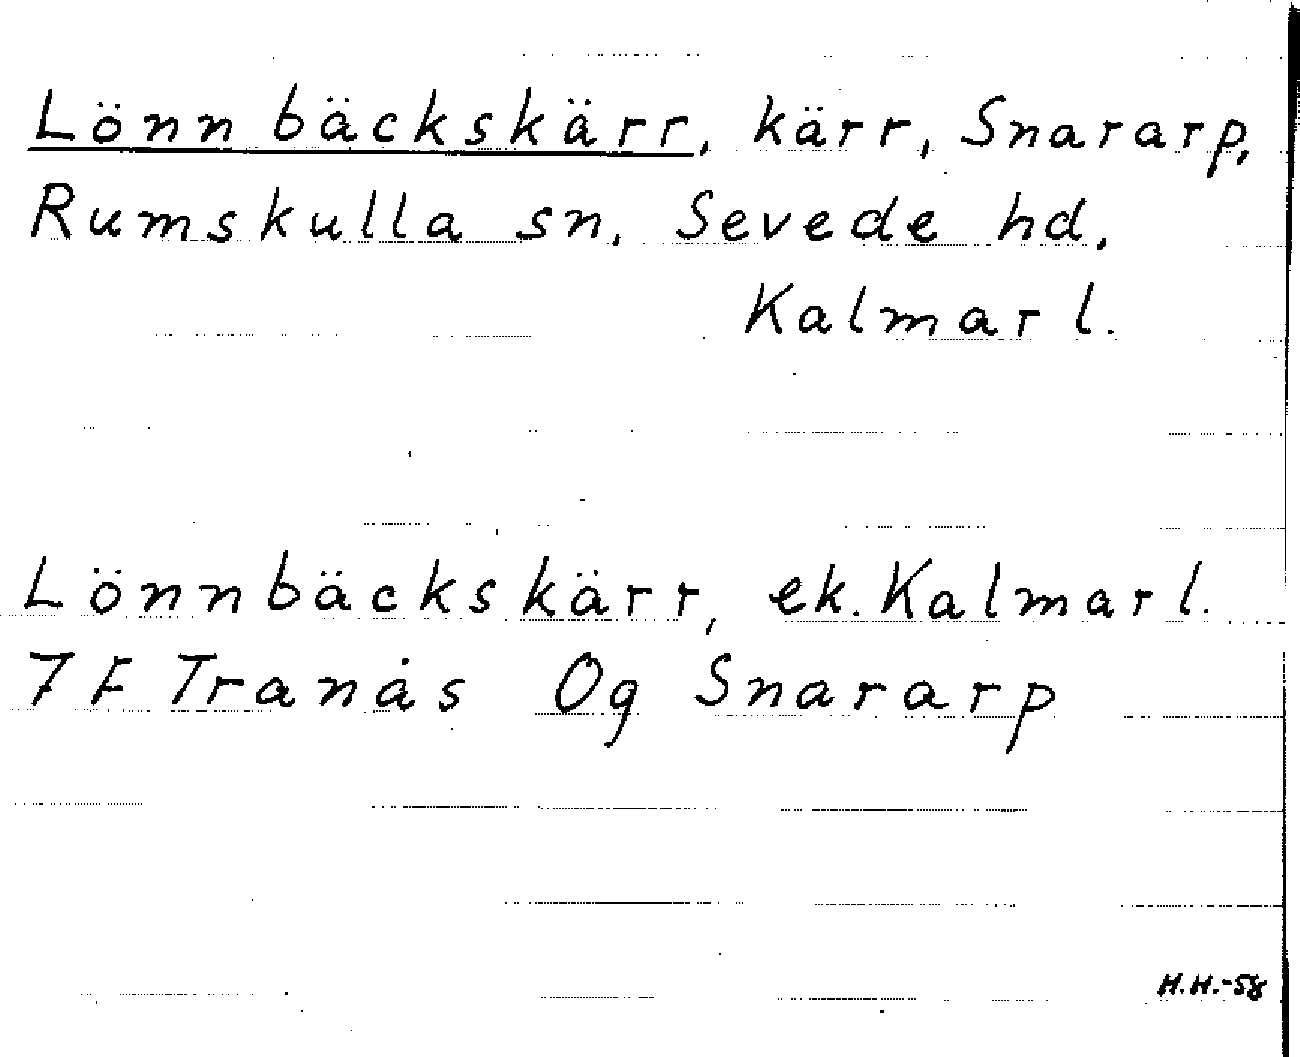 Lönnbäckskärr, kärr, Snararp,
Rumskulla sn, Sevede hd,
Kalmar l.
Lönnbäckskärr, ek. Kalmar l.
7 F Tranås Og Snararp
H.H.-58